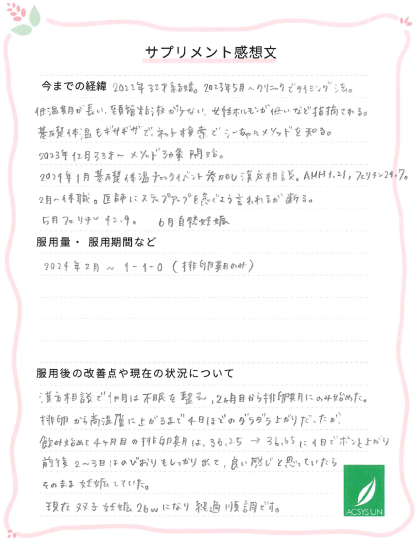 サプリメント感想文
今までの経緯 2022年32才結婚。2023年5月〜クリニックでタイミング法。
低温期が長い、頚管粘液が少ない、女性ホルモンが低いなど指摘される。
基礎体温もギザギザで、ネット検索でシーちゃんメソッドを知る。
2023年12月33才〜メソッド治療開始。
2024年1月基礎体温チェックイベント参加し漢方相談。AMH1.21, フェリチン29.7。
2月〜休職。医師にステップアップを急ぐよう言われるが断る。
5月フェリチン42.9。 6月自然妊娠
服用量・ 服用期間など
2024年2月 〜 1-1-0 (排卵期のみ)
服用後の改善点や現在の状況について
漢方相談で1ヶ月は不眠を整え、2ヶ月目から排卵期にのみ始めた。
排卵から高温層に上がるまで4日ほどのダラダラ上がりだったが、
飲み始めて4ヶ月目の排卵期は、36.25 → 36.65に1日でポンと上がり
前後2〜3日はのびおりもしっかり出て、良い感じと思っていたら
そのまま妊娠していた。
現在双子妊娠26wになり経過順調です。
ACSYS LIN